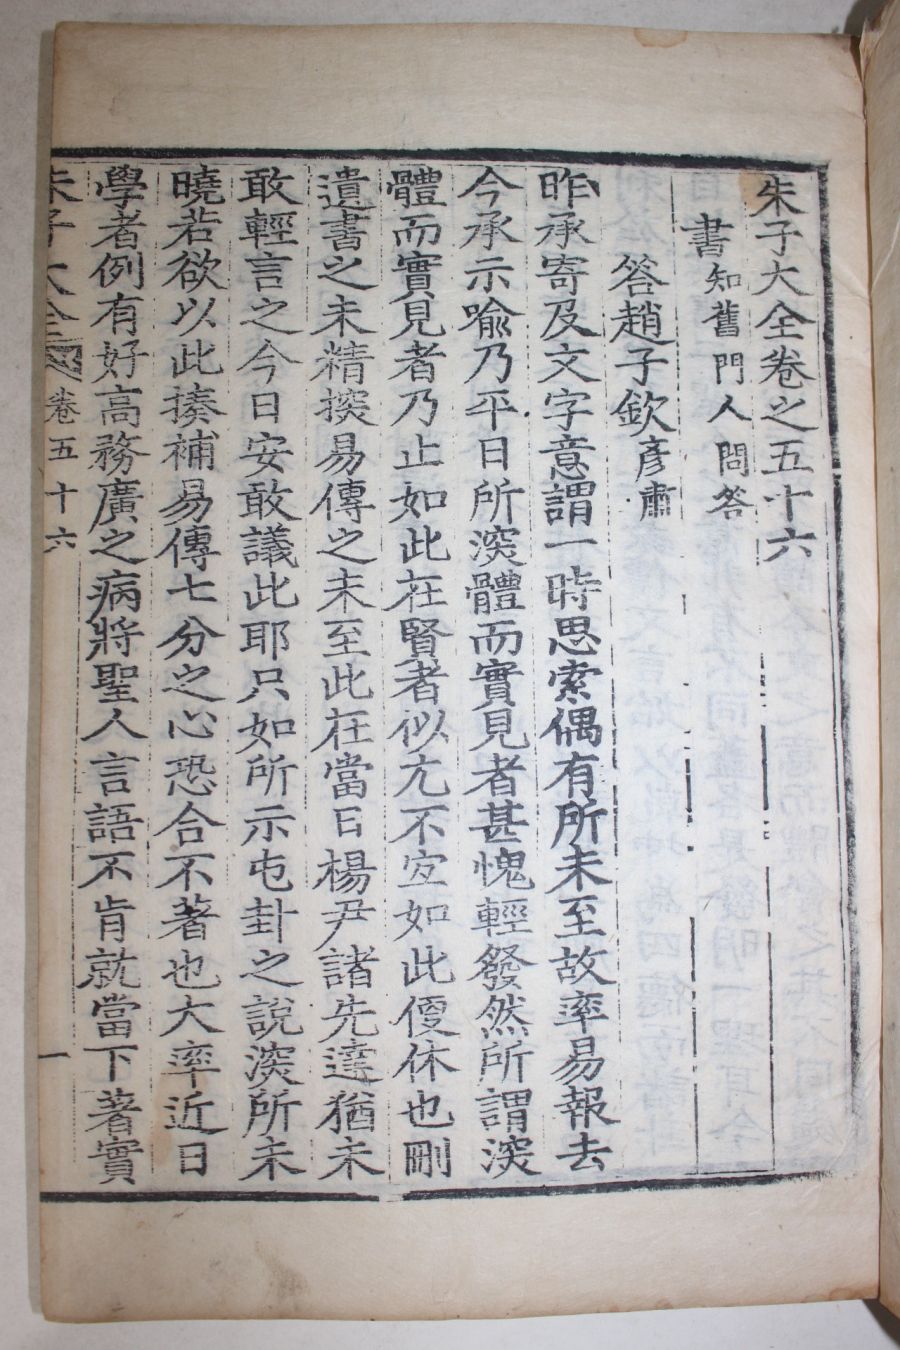 朱子大全卷之五十六
書知舊門人問答
答趙子欽彦肅
昨承寄及文字意謂一時思索偶有所未至故率易報去
今承示喩乃平日所深體而實見者甚愧輕發然所謂深
體而實見者乃止如此在賢者似尤不宜如此便休也刪
遺書之未精擇易傳之未至此在當日楊尹諸先達猶未
敢輕言之今日安敢議此耶只如所示屯卦之說深所未
曉若欲以此揍補易傳七分之心恐合不著也大率近日
學者例有好高務廣之病將聖人言語不肯就當下著實
朱子大全 卷五十六 一